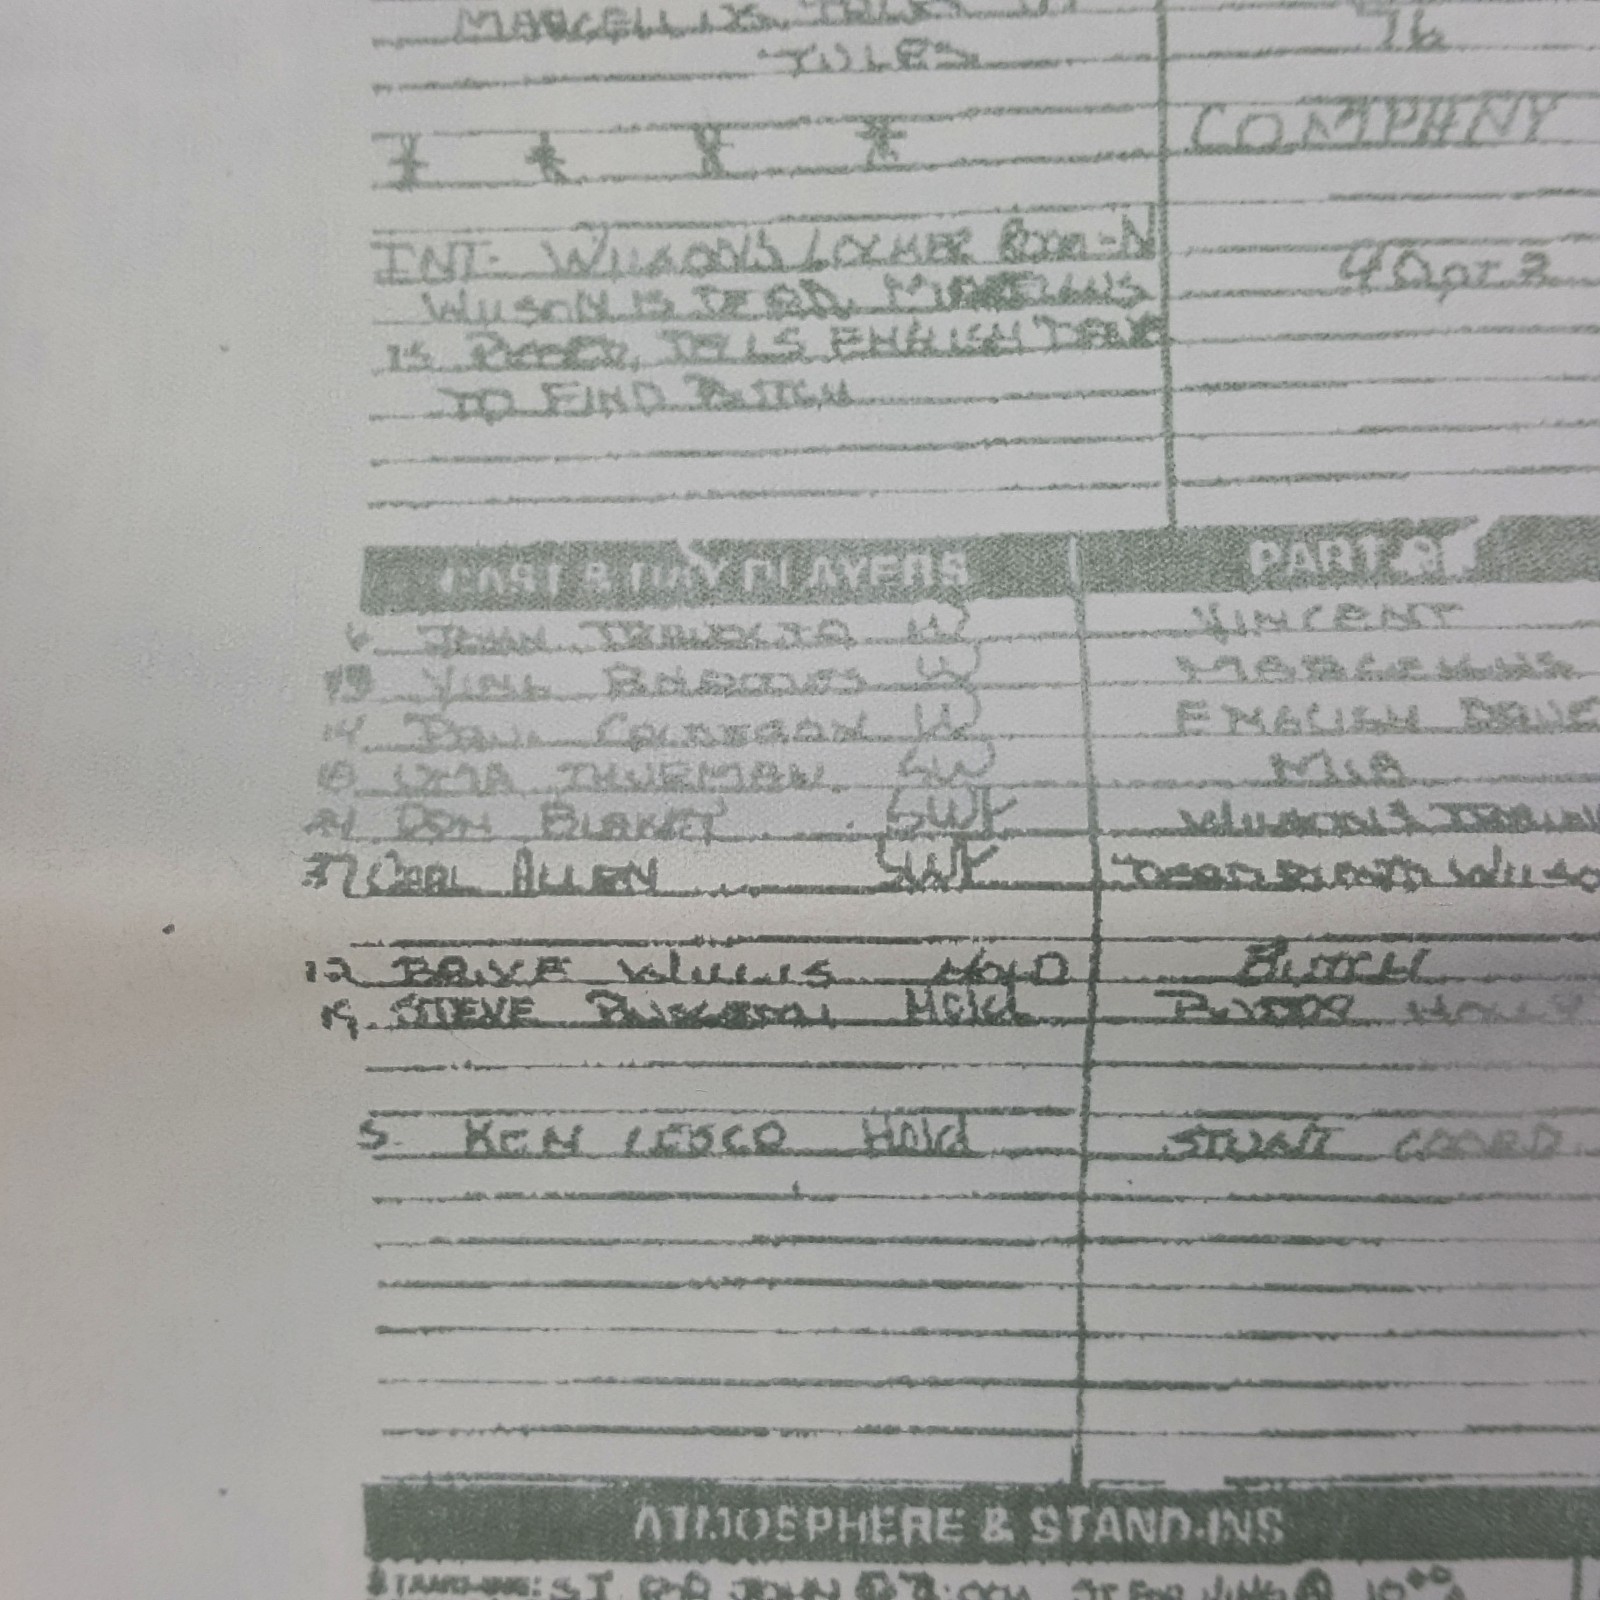 MARCELLUS TALKS TO
JULES
76
* * * *
COMPANY
INT. WILSON'S LOCKER ROOM-N
4 Q pt 2
WILSON IS DEAD, MARCELLUS
IS PISSED, TELLS ENGLISH DAVE
TO FIND BUTCH
CAST & DAY PLAYERS PART OF
6. JOHN TRAVOLTA W VINCENT
13 VING RHAMES W MARCELLUS
14 PAUL CALDERON W ENGLISH DAVE
UMA THURMAN SW MIA
DON BLAKELY SWF WILSON'S TRAINER
37 CARL ALLEN SWF DEAD FLOYD WILSO
12 BRUCE WILLIS HOLD BUTCH
19. STEVE BUSCEMI Hold BUDDY HOLLY
5. KEN LESCO Hold STUNT COORD.
ATMOSPHERE & STAND-INS
STAND-INS: S.I. FOR JOHN @ ST FOR VING @ 10